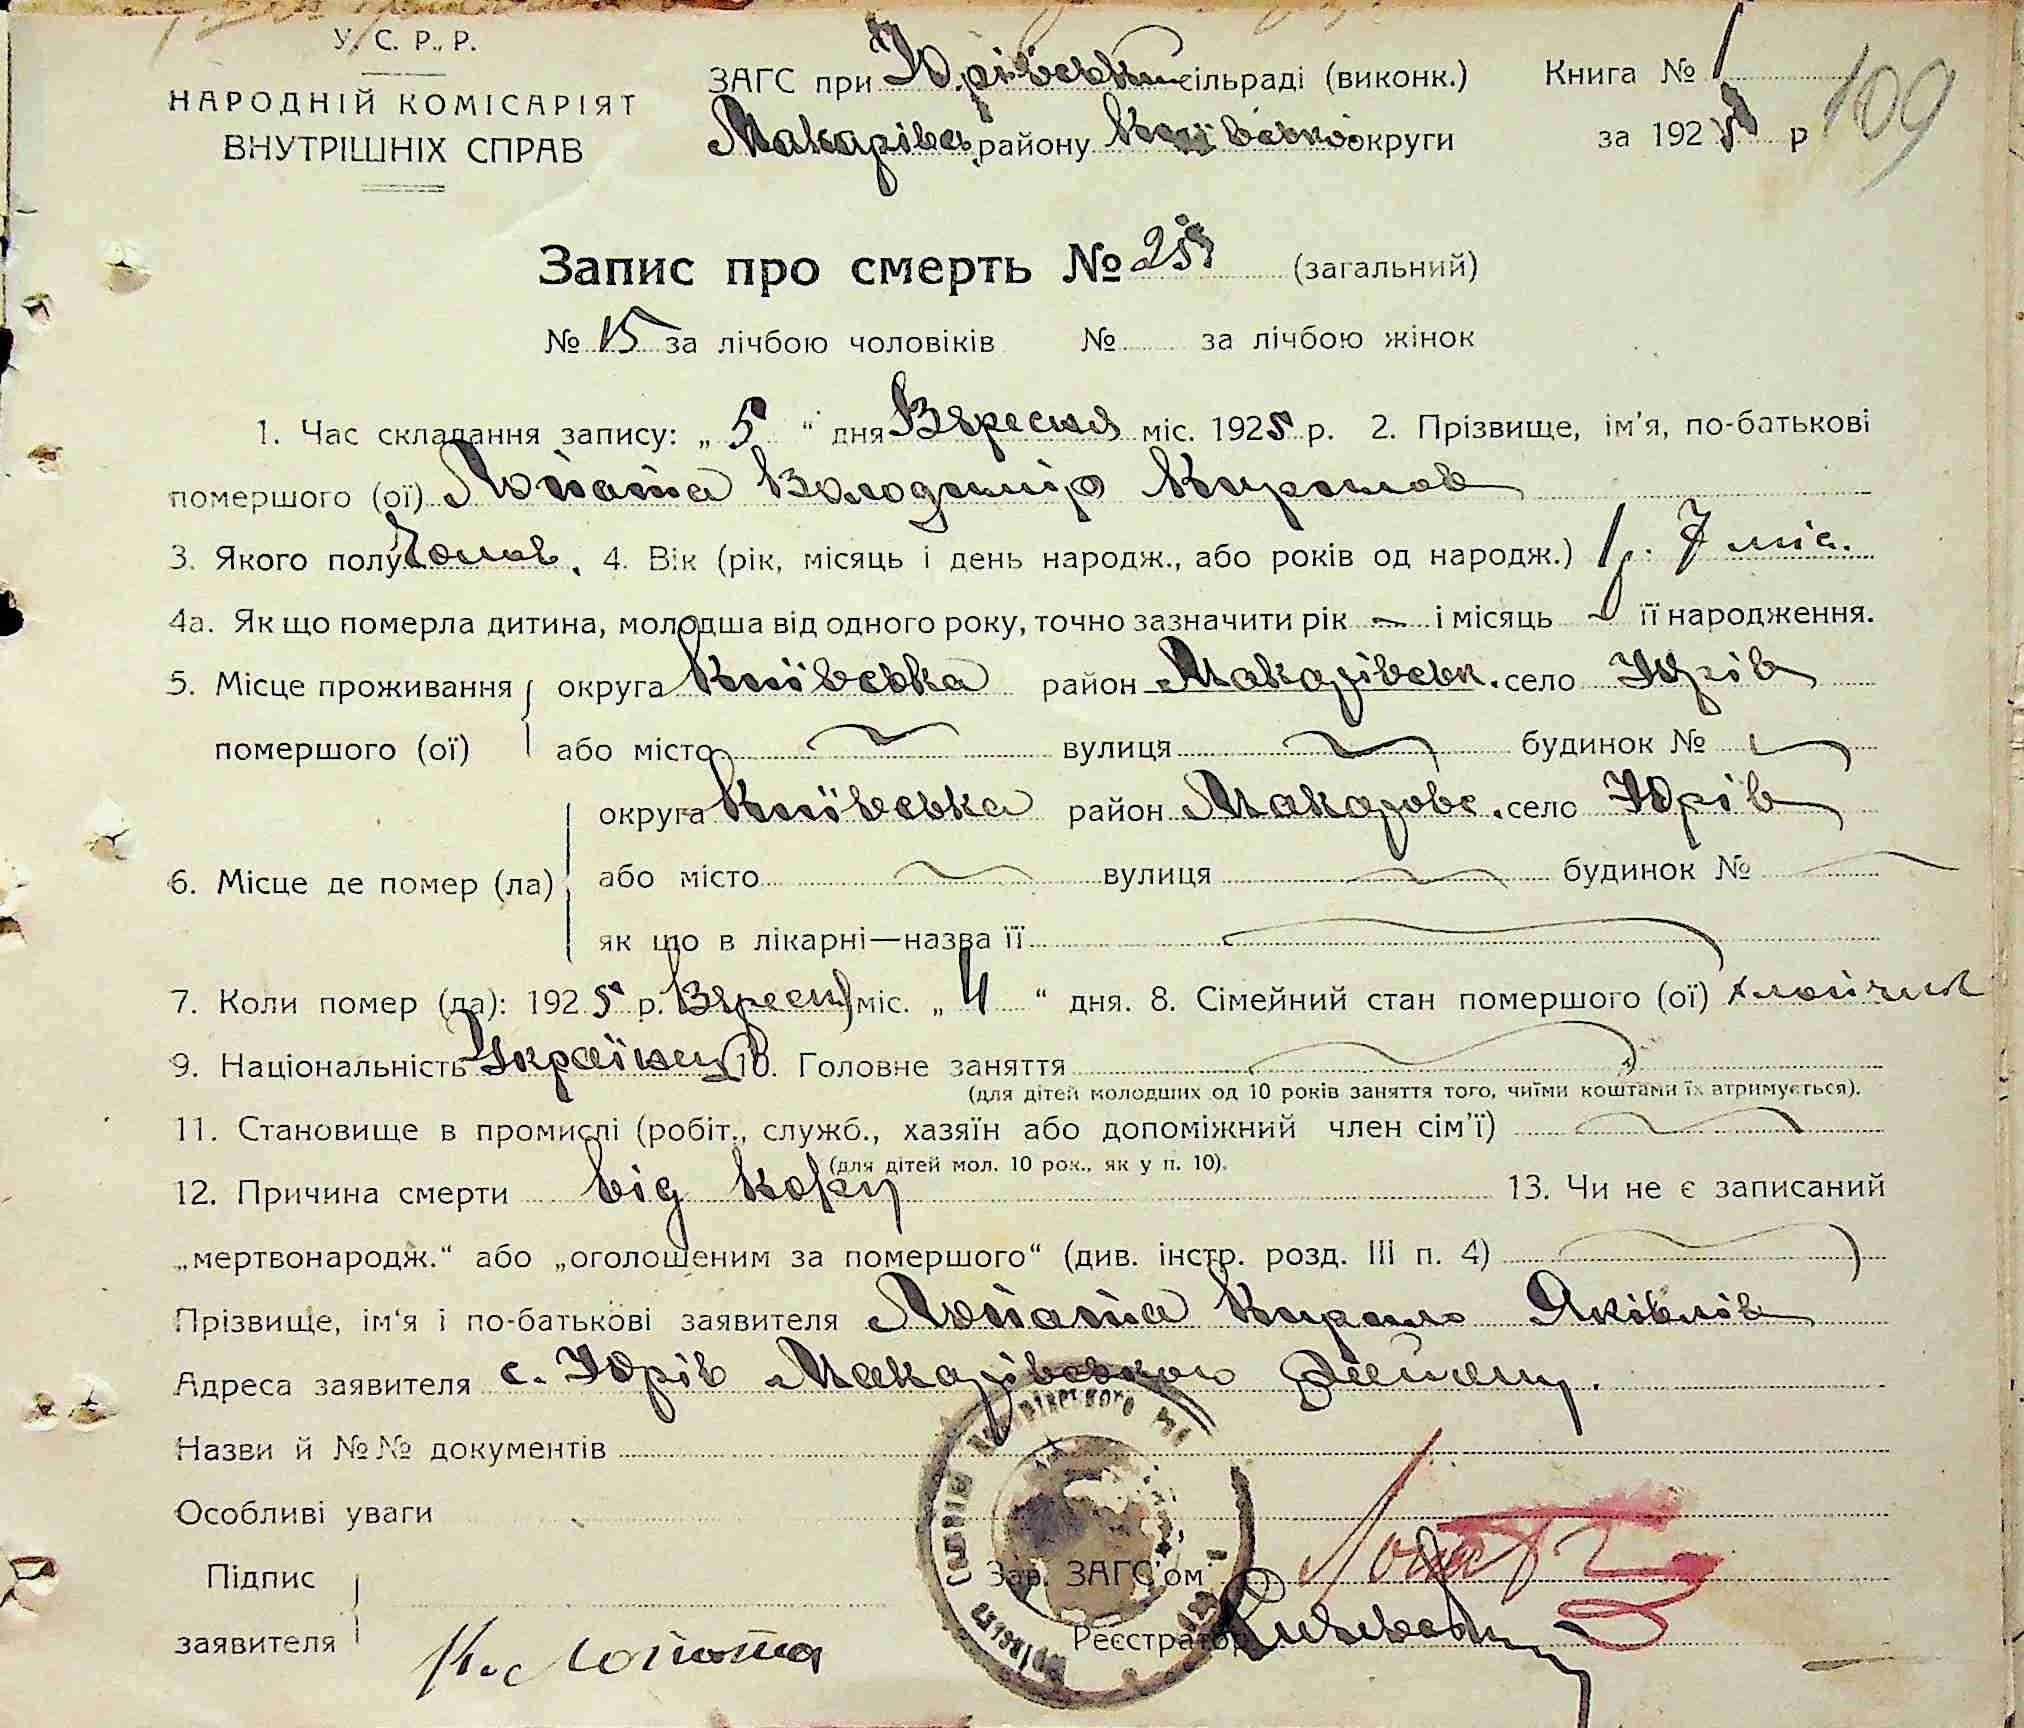 У. С. Р. Р.
НАРОДНІЙ КОМІСАРІЯТ
ВНУТРІШНІХ СПРАВ
ЗАГС при Юрівській сільраді (виконк.)
Макарівськ району Київської округи
Книга № 1
за 1925 р
109
Запис про смерть № 25 (загальний)
№ 15 за лічбою чоловіків № за лічбою жінок
1. Час складання запису: „ 5 “ дня Вересня міс. 1925 р. 2. Прізвище, ім'я, по-батькові
помершого (ої) Лопата Володимір Кирилов
3. Якого полу Чолов. 4. Вік (рік, місяць і день народж., або років од народж.) 1 р. 7 міс.
4а. Як що померла дитина, молодша від одного року, точно зазначити рік — і місяць — її народження.
5. Місце проживання округа Київська район Макарівськ. село Юрів
помершого (ої) або місто вулиця будинок №
округа Київська район Макаровс. село Юрів
6. Місце де помер (ла) або місто вулиця будинок №
як що в лікарні—назва її
7. Коли помер (ла): 1925 р. Вересня міс. „ 4 “ дня. 8. Сімейний стан помершого (ої) хлопчик
9. Національність Українец 10. Головне заняття
(для дітей молодших од 10 років заняття того, чиїми коштами їх втримується).
11. Становище в промислі (робіт., служб., хазяїн або допоміжний член сім'ї)
(для дітей мол. 10 рок., як у п. 10).
12. Причина смерти від кору 13. Чи не є записаний
„мертвонародж.“ або „оголошеним за помершого“ (див. інстр. розд. III п. 4)
Прізвище, ім'я і по-батькові заявителя Лопата Кирило Яківлів
Адреса заявителя с. Юрів Макарівського Району.
Назви й №№ документів
Особливі уваги
Підпис
заявителя К. Лопата
Зав. ЗАГС'ом
Реєстратор